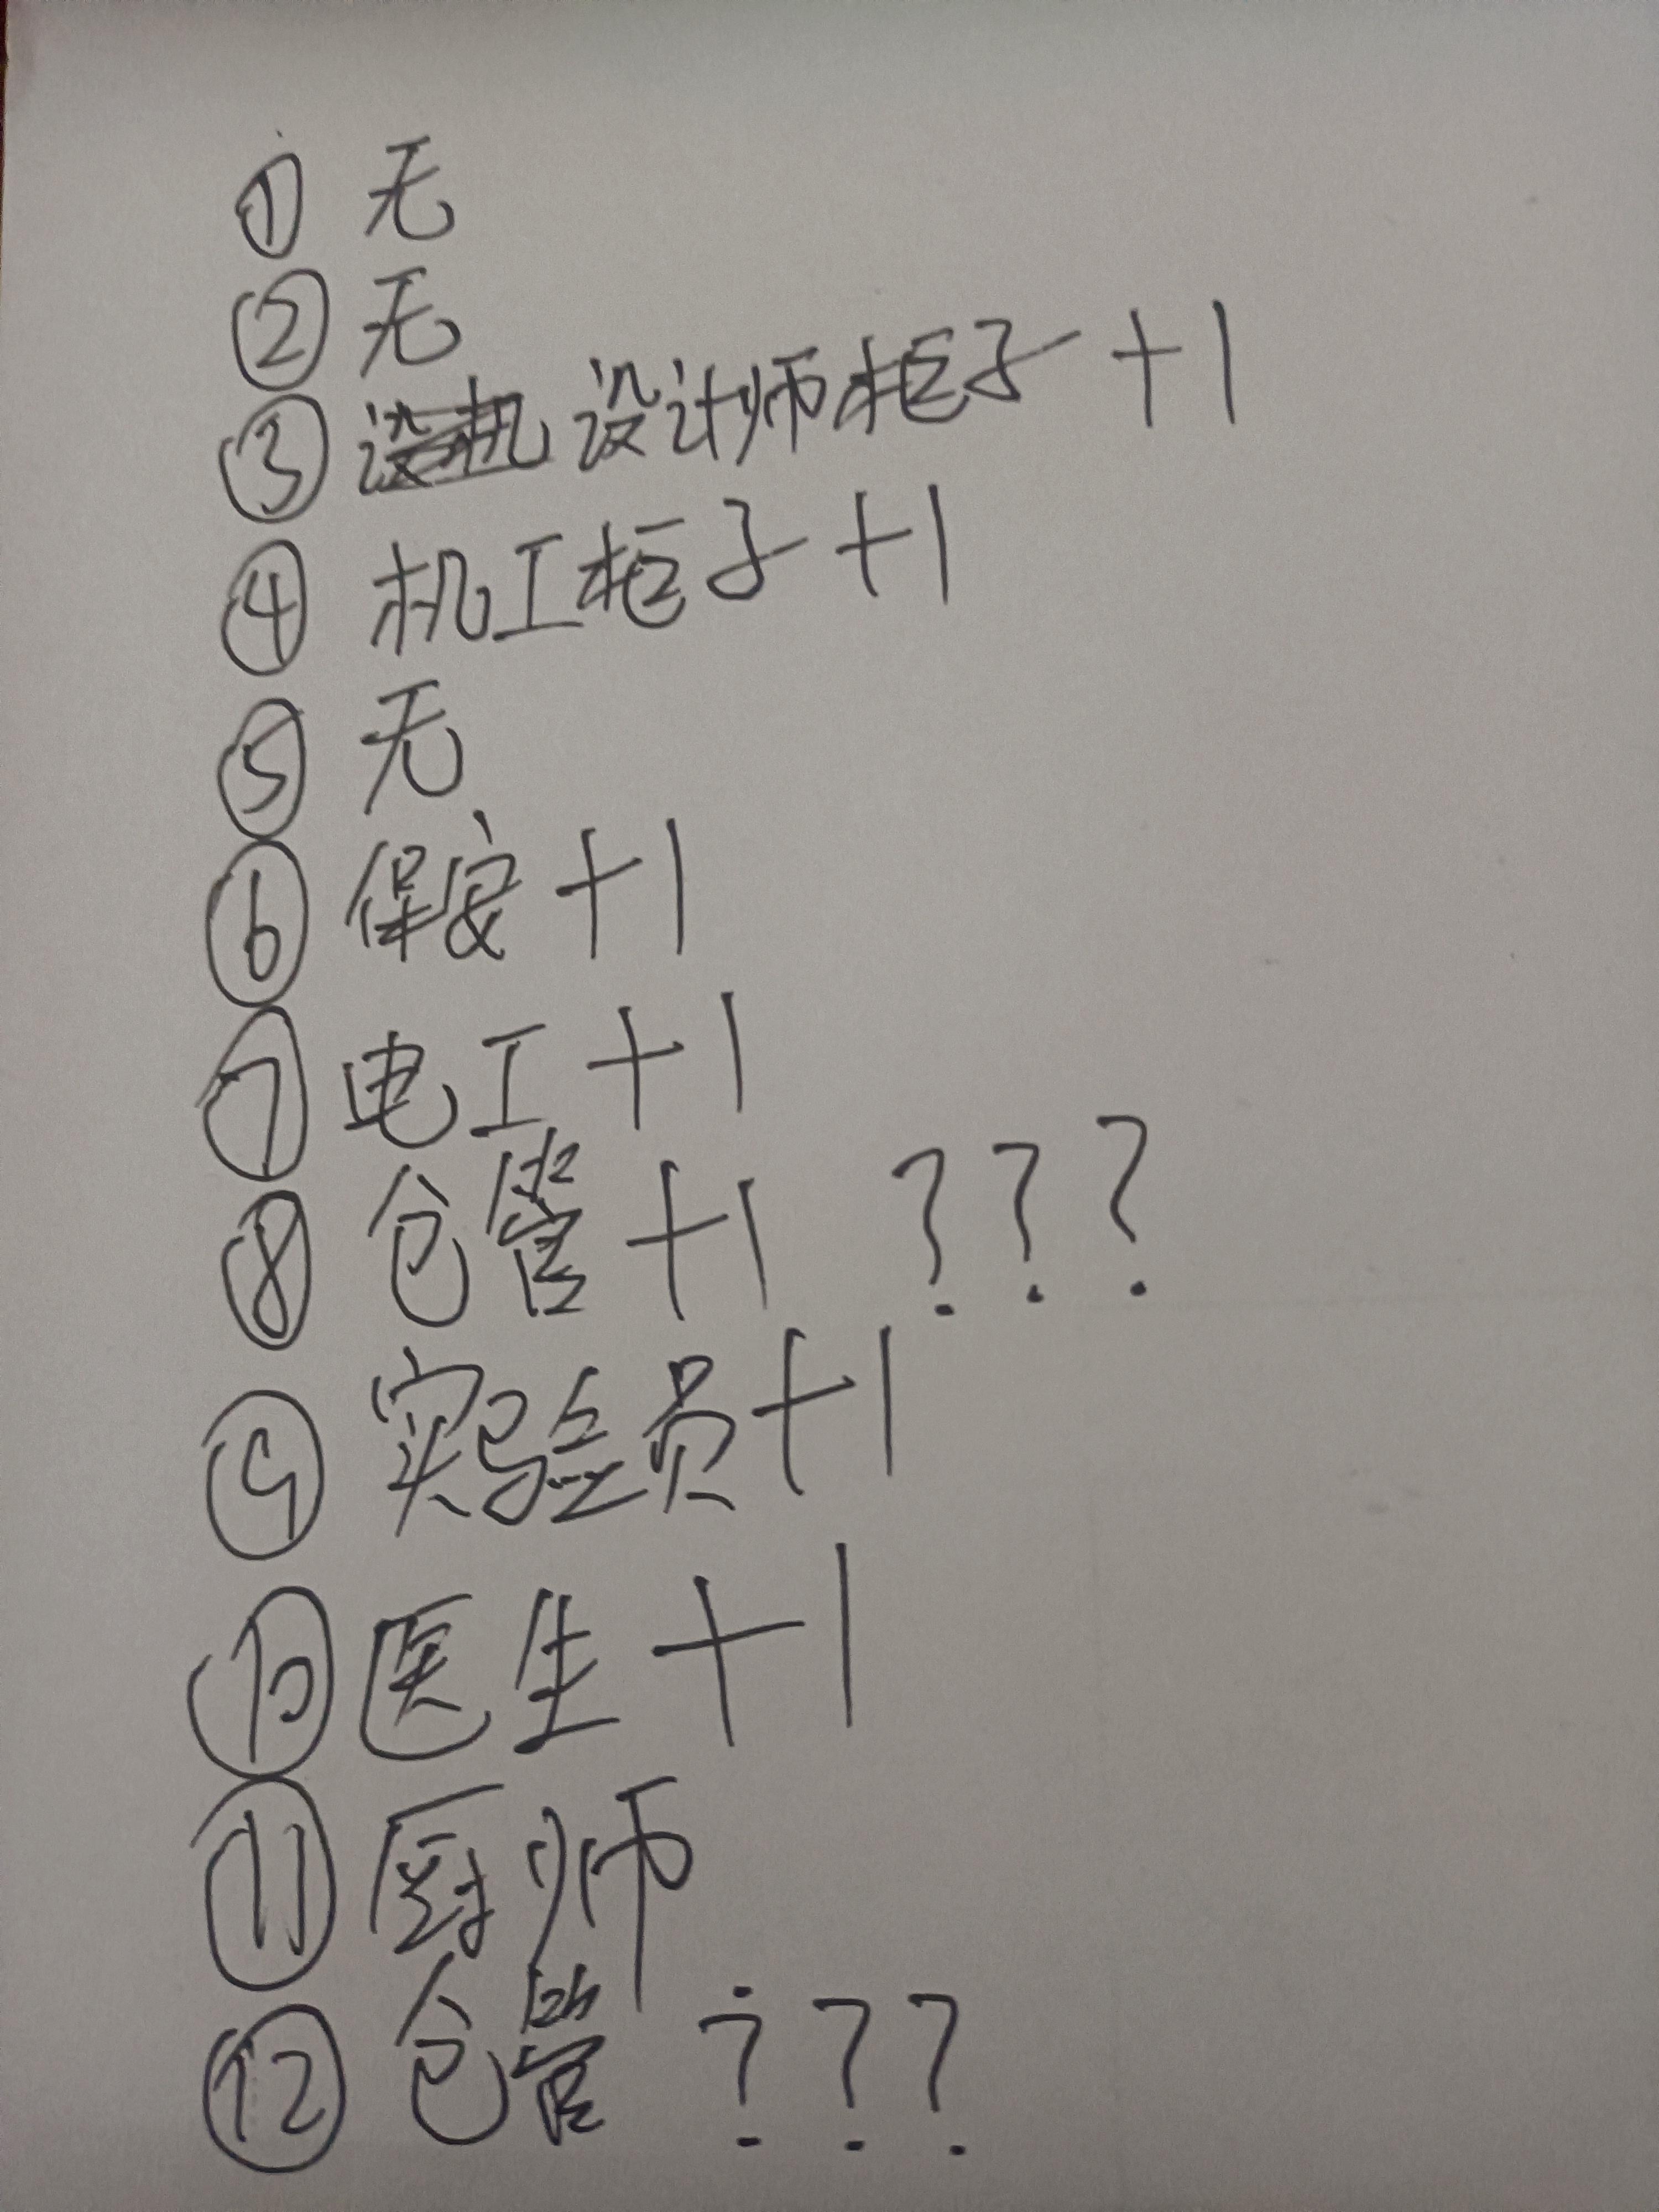 ① 无
② 无
③ 设计师柜子+1
④ 机工柜子+1
⑤ 无
⑥ 保安+1
⑦ 电工+1
⑧ 仓管+1 ???
⑨ 实验员+1
⑩ 医生+1
⑪ 厨师
⑫ 仓管 ???